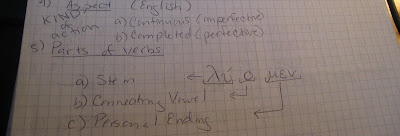 4) Aspect (English)
KIND of action
a) Continuous (imperfective)
b) Completed (perfective)
5) Parts of verbs
a) Stem ← λύ ο μεν
b) Connecting Vowel
c) Personal Ending